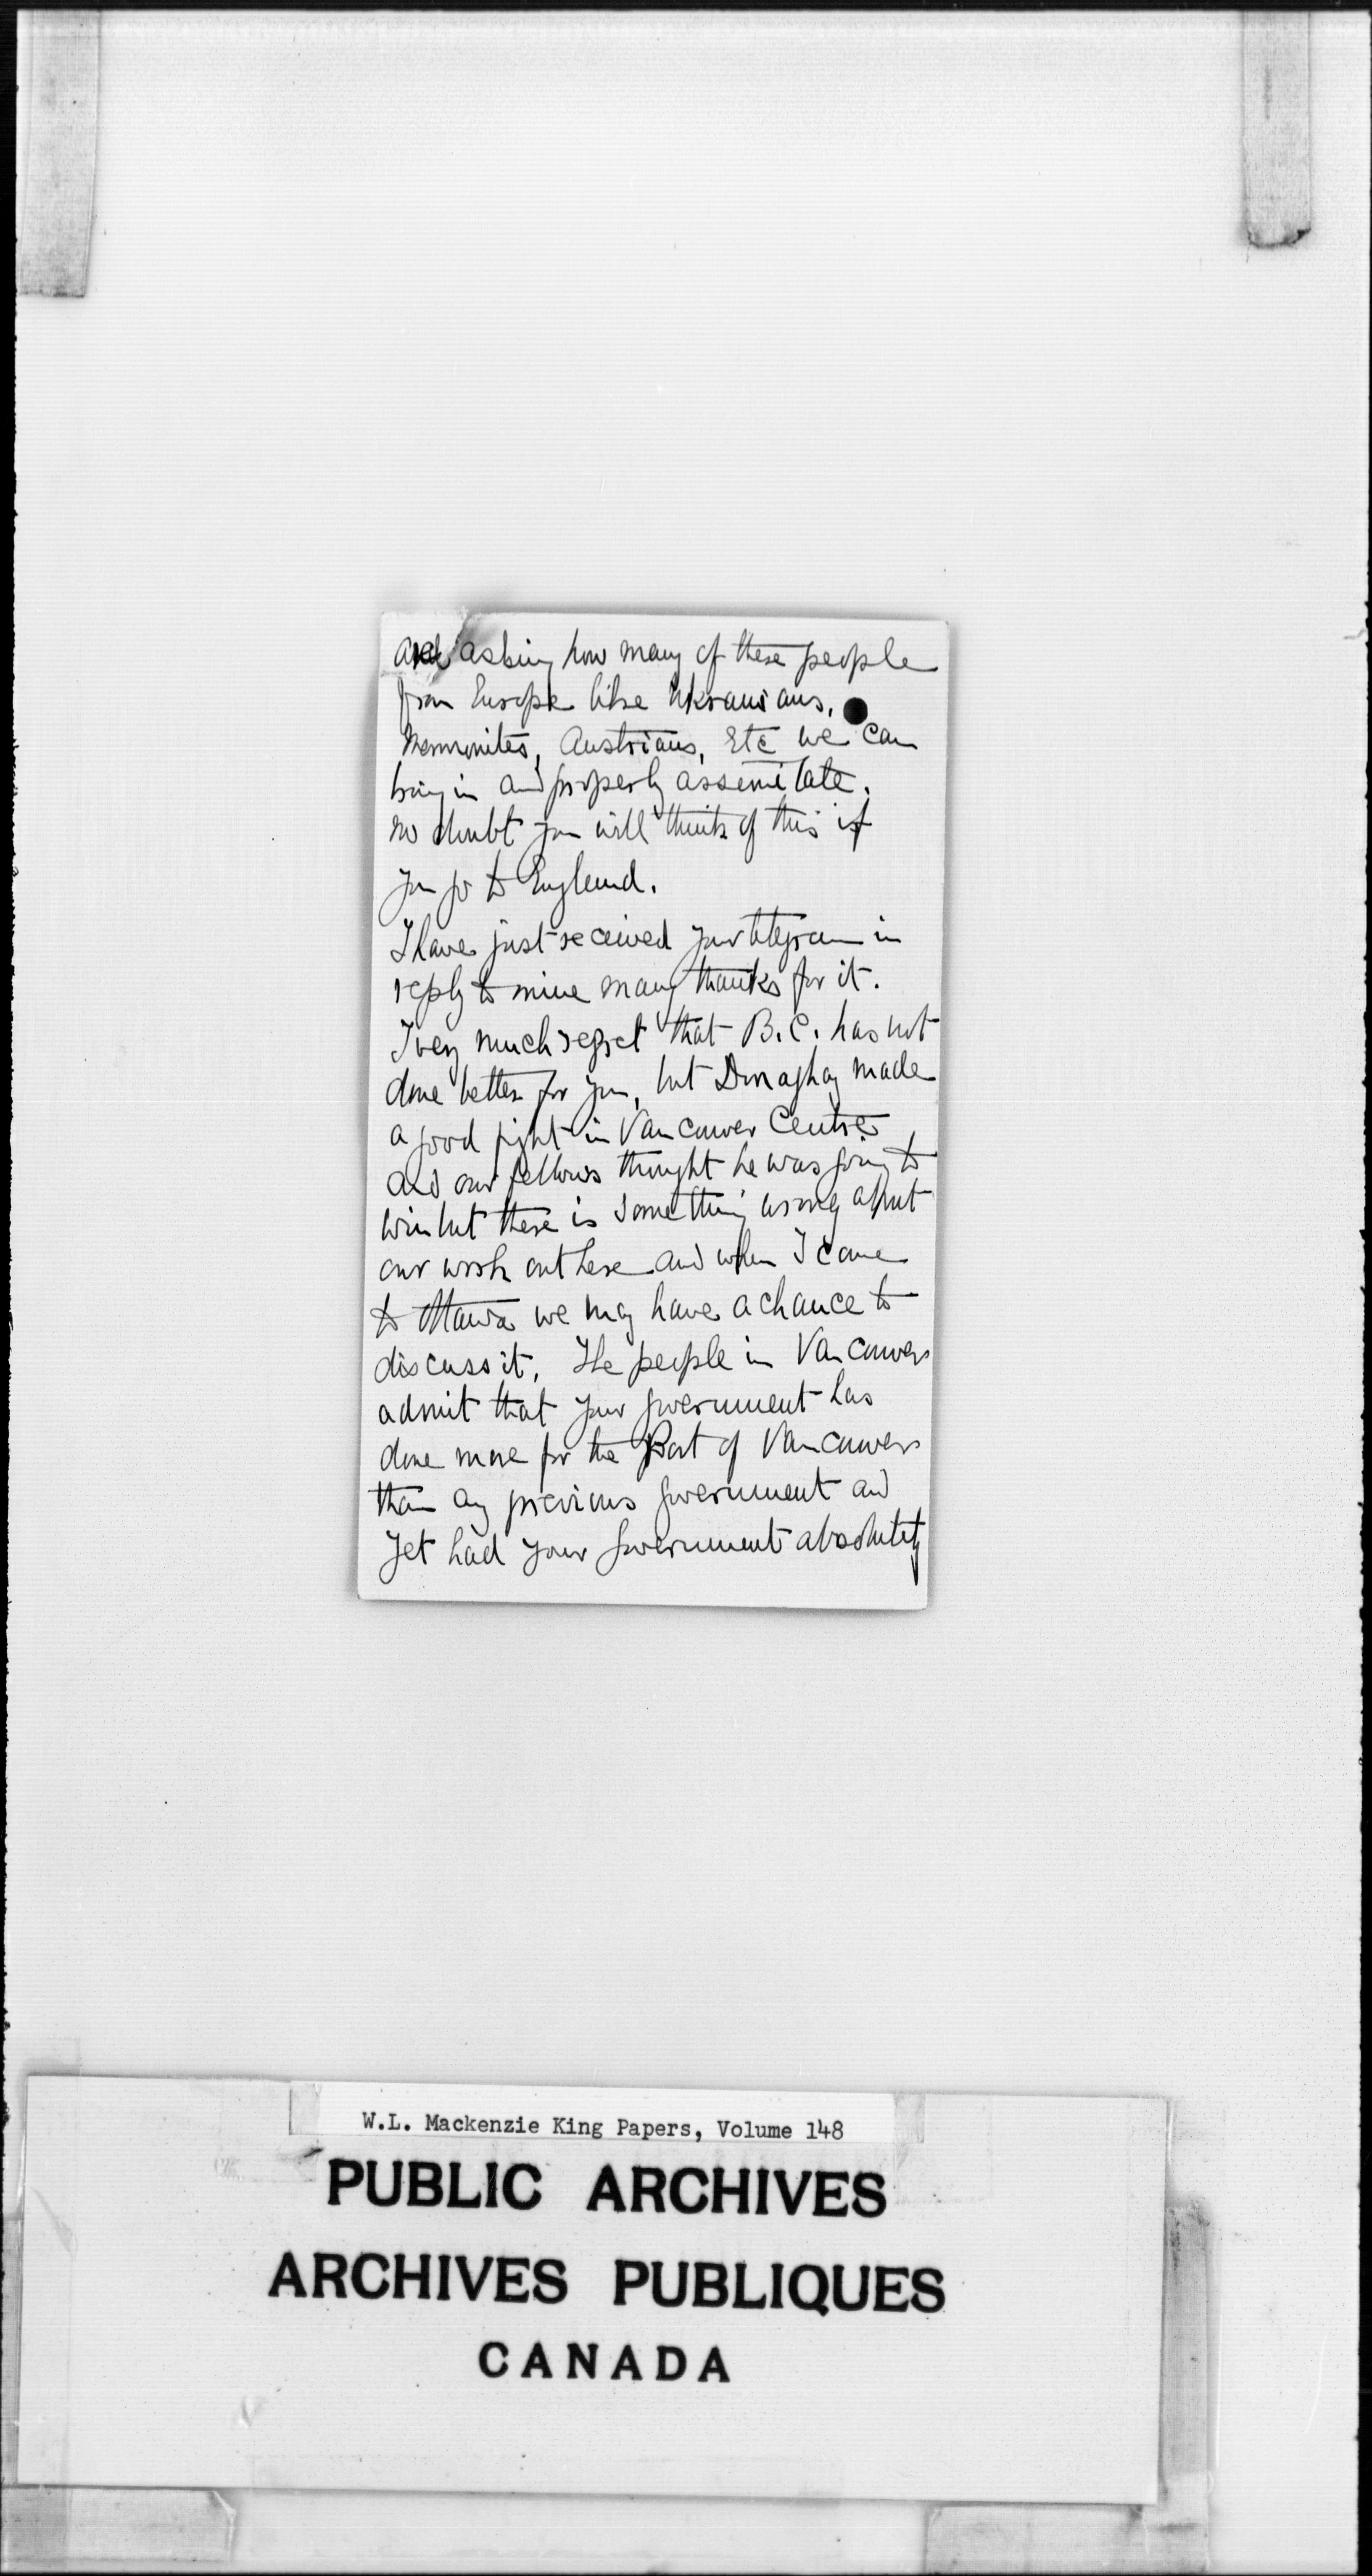 are asking how many of these people
from Europe like Ukranians,
Mennonites, Austrians, Etc we can
bring in and properly assemilate.
no doubt you will think of this if
you go to England.
I have just received your telegram in
reply to mine many thanks for it.
I very much regret that B.C. has not
done better for you, but Donaghy made
a good fight in Vancouver Centre
and our fellows thought he was going to
win but there is something wrong about
our work out here and when I come
to Ottawa we may have a chance to
discuss it. The people in Vancouver
admit that your government has
done more for the Port of Vancouver
than any previous government and
yet had your government absolutely
W.L. Mackenzie King Papers, Volume 148
PUBLIC ARCHIVES
ARCHIVES PUBLIQUES
CANADA